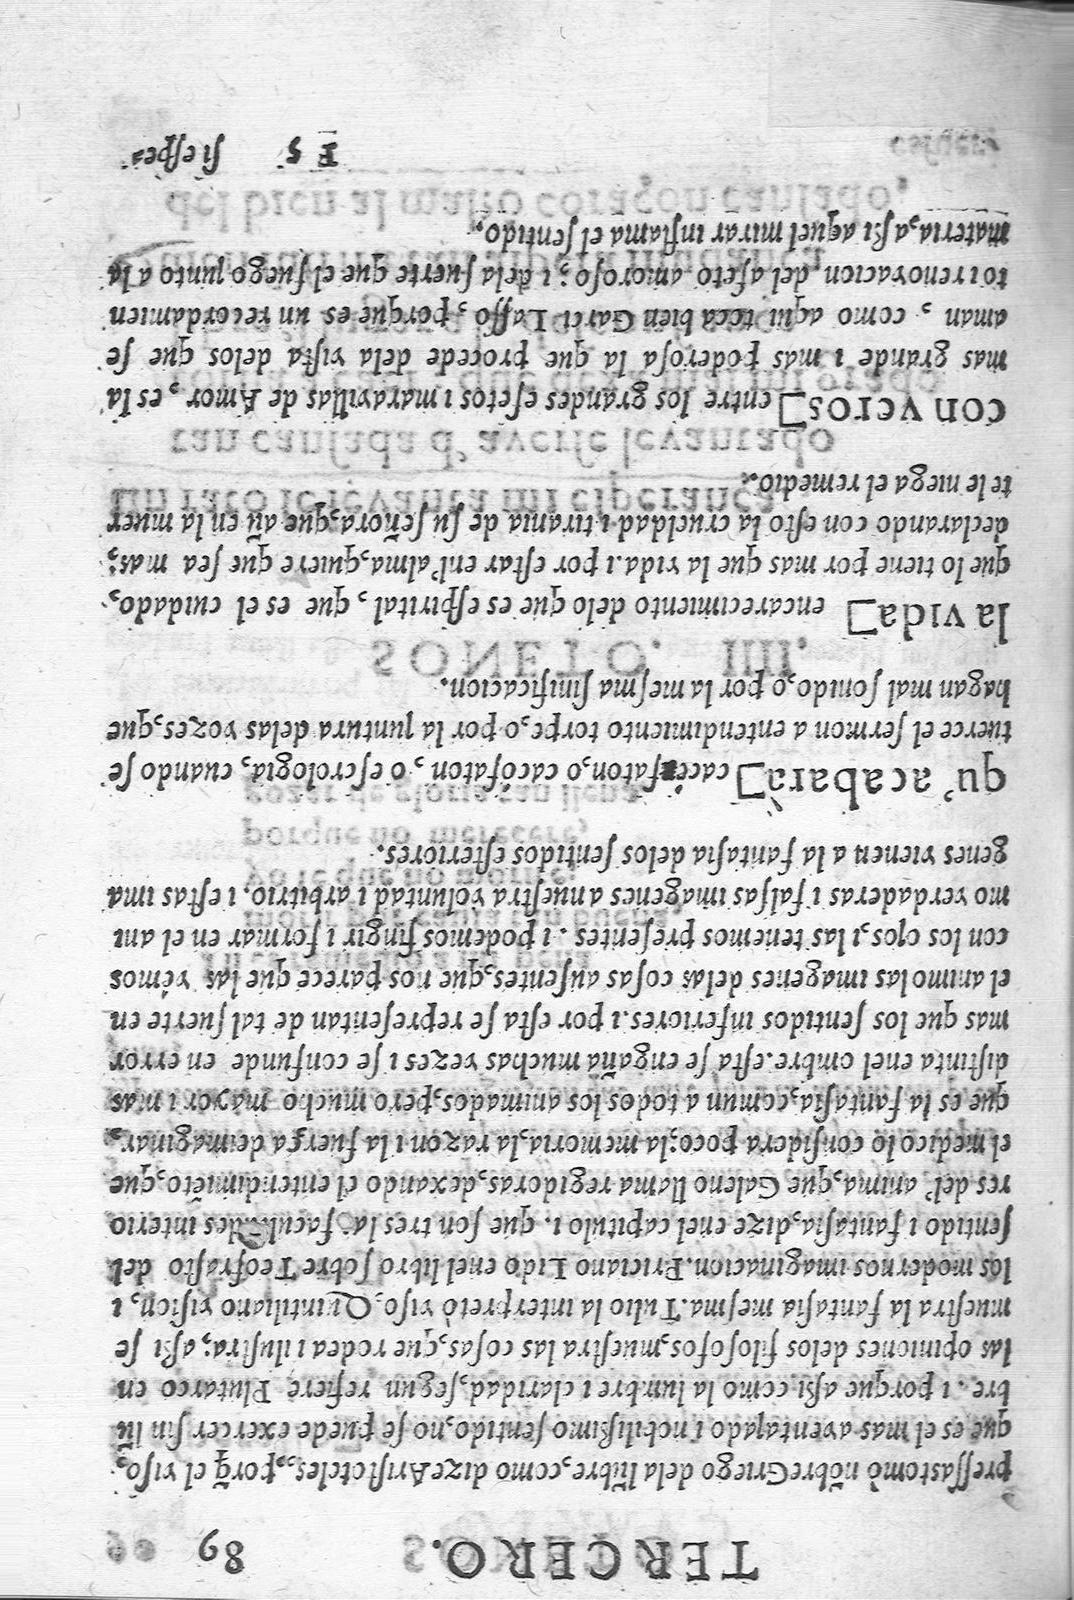 TERCERO. 89
pressas tomò nōbre Griego dela lūbre, como dize Aristoteles, porq̄ el viso,
que es el mas aventajado i nobilissimo sentido, no se puede exercer sin lū
bre. i porque assi como la lumbre i claridad, segun refiere Plutarco en
las opiniones delos filosofos, muestra las cosas, que rodea i ilustra; assi se
muestra la fantasia mesma. Tulio la interpretò viso, Quintiliano vision, i
los modernos imaginacion. Priciano Lido enel libro sobre Teofrasto del
sentido i fantasia, dize enel capitulo 1. que son tres las facultades interio
res del' anima, que Galeno llama regidoras, dexando el entendimiēto, que
el medico lo considera poco; la memoria, la razon i la fuerça de imaginar,
que es la fantasia, comun a todos los animados, pero mucho mayor i mas
distinta enel ombre. esta se engaña muchas vezes i se confunde en error
mas que los sentidos inferiores. i por esta se representan de tal suerte en
el animo las imagenes delas cosas ausentes, que nos parece que las vemos
con los ojos, i las tenemos presentes. i podemos fingir i formar en el ani
mo verdaderas i falsas imagenes a nuestra voluntad i arbitrio. i estas ima
genes vienen a la fantasia delos sentidos esteriores.
qu' acabarà] cacefaton, o cacofaton, o escrologia, cuando se
tuerce el sermon a entendimiento torpe, o por la juntura delas vozes, que
hagan mal sonido, o por la mesma sinificacion.
la vida] encarecimiento delo que es espirital, que es el cuidado,
que lo tiene por mas que la vida. i por estar enl' alma, quiere que sea mas;
declarando con esto la crueldad i tirania de su señora, que aū en la muer
te le niega el remedio.
con veros] entre los grandes efetos i maravillas de Amor, es la
mas grande i mas poderosa la que procede dela vista delos que se
aman, como aqui toca bien Garci Lasso, porque es un recordamien
to i renovacion del afeto amoroso; i dela suerte que el fuego junto a la
materia, assi aquel mirar inflama el sentido.
F 5 si espe-